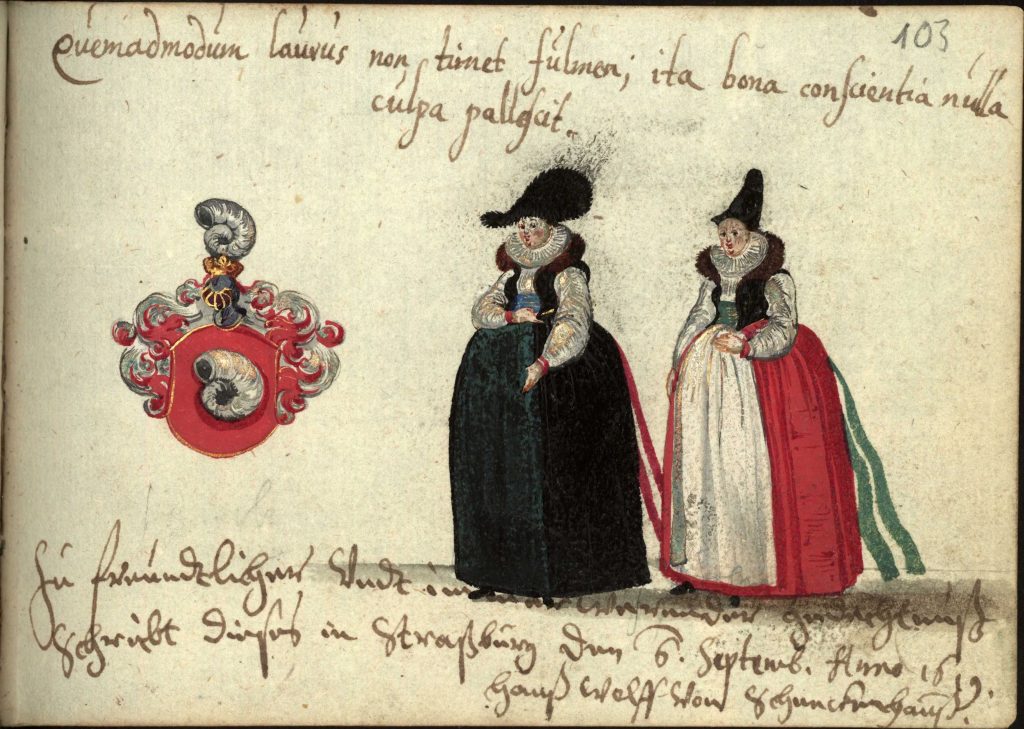 103
Quemadmodum laurus non timet fulmen; ita bona conscientia nulla
culpa pallescit.
Zu freündtlicher Undt immer werender gedechtnuß
Schreibt dieses in Straßburg den 6. Septemb. Anno 16
Hanß Wolff Von